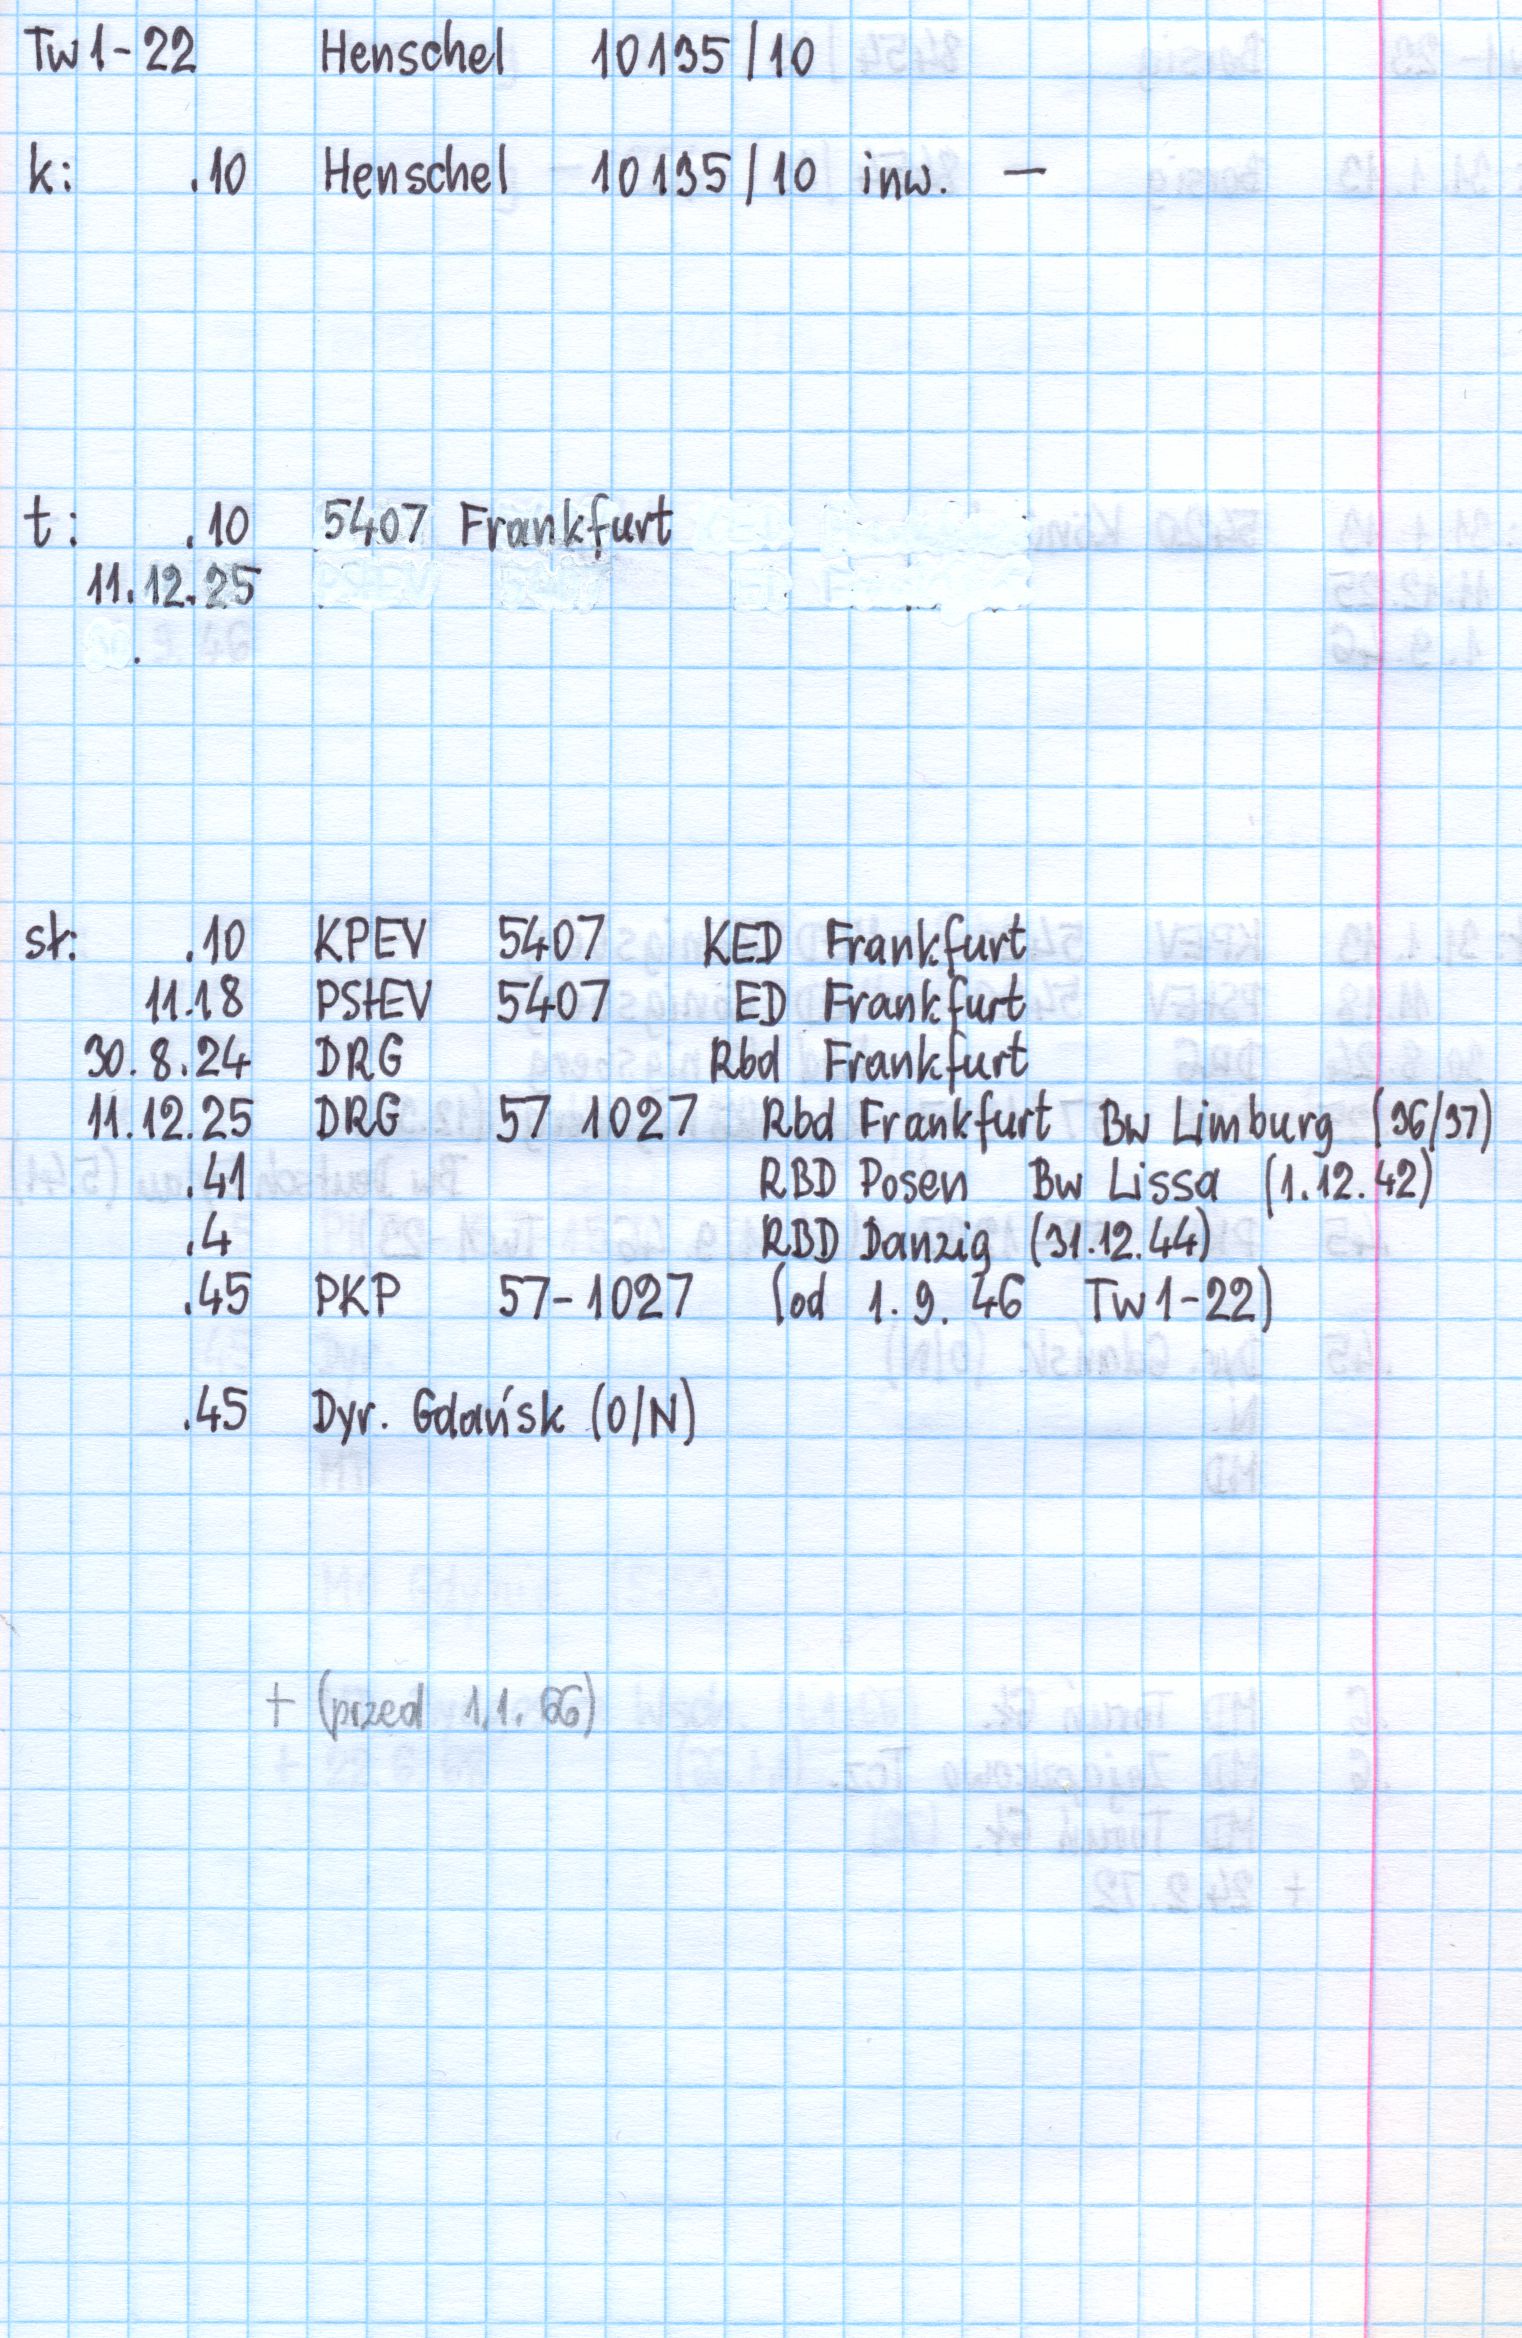 Tw1-22 Henschel 10135/10
k: .10 Henschel 10135/10 inw. —
t: .10 5407 Frankfurt
11.12.25
st: .10 KPEV 5407 KED Frankfurt
11.18 PStEV 5407 ED Frankfurt
30.8.24 DRG Rbd Frankfurt
11.12.25 DRG 57 1027 Rbd Frankfurt Bw Limburg (36/37)
.41 RBD Posen Bw Lissa (1.12.42)
.4 RBD Danzig (31.12.44)
.45 PKP 57-1027 (od 1.9.46 Tw1-22)
.45 Dyr. Gdańsk (O/N)
+ (przed 1.1.66)